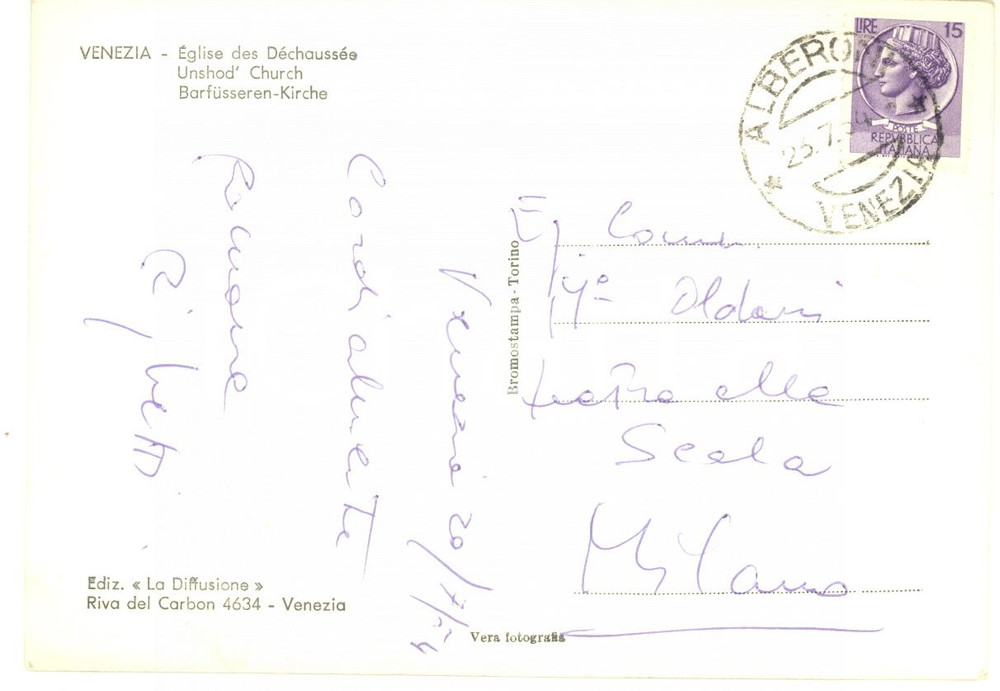 VENEZIA - Église des Déchaussée
Unshod' Church
Barfüsseren-Kirche
LIRE 15
POSTE
REPVBBLICA
ITALIANA
ALBERONI
VENEZIA
Venezia 20/7/54
Cordialmente
Romano
Comm.
Oldani
teatro alla
Scala
Milano
Bromostampa - Torino
Ediz. « La Diffusione »
Riva del Carbon 4634 - Venezia
Vera fotografia